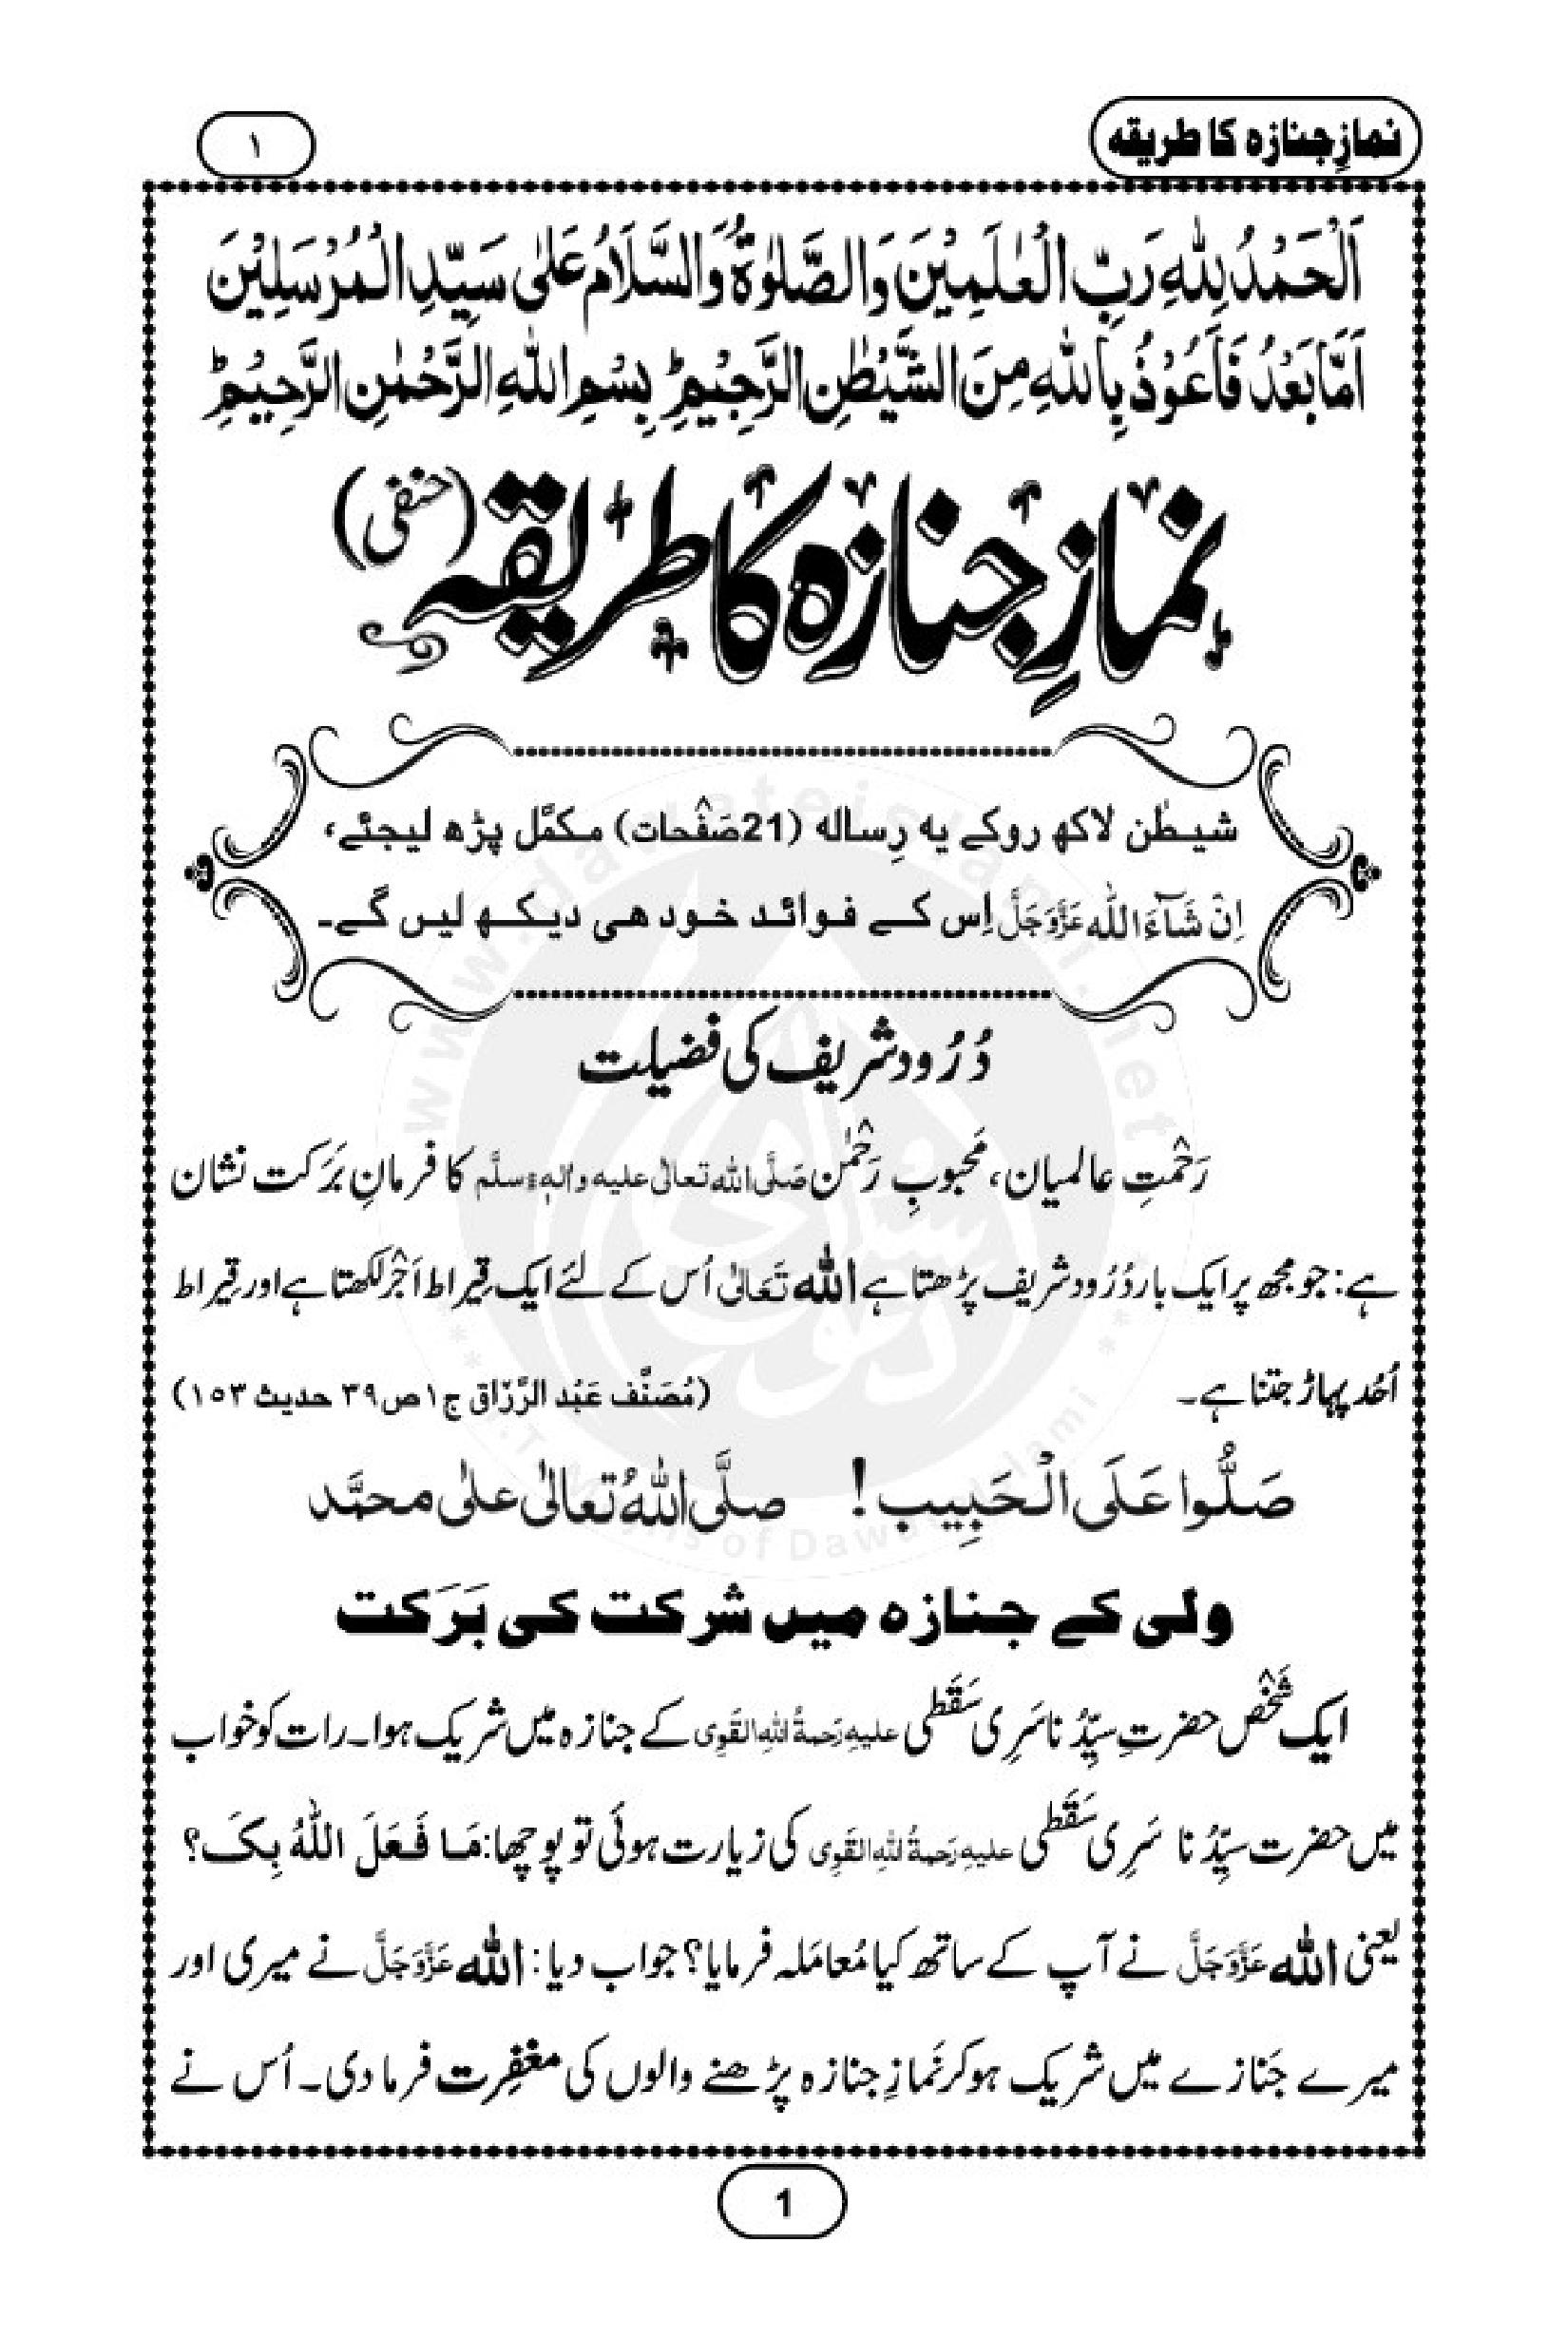 نمازِ جنازہ کا طریقہ
۱
اَلْحَمْدُ لِلّٰہِ رَبِّ الْعٰلَمِیْنَ وَالصَّلٰوۃُ وَالسَّلَامُ عَلٰی سَیِّدِ الْمُرْسَلِیْنَ
اَمَّا بَعْدُ فَاَعُوْذُ بِاللّٰہِ مِنَ الشَّیْطٰنِ الرَّجِیْمِ ؕ بِسْمِ اللّٰہِ الرَّحْمٰنِ الرَّحِیْمِ ؕ
نمازِ جنازہ کا طریقہ (حنفی)
شیطٰن لاکھ روکے یہ رِسالہ (21صَفْحات) مکمَّل پڑھ لیجئے،
اِنْ شَآءَاللّٰہ عَزَّوَجَلَّ اِس کے فوائد خود ھی دیکھ لیں گے۔
دُرُود شریف کی فضیلت
رَحْمتِ عالمیان، مَحبوبِ رَحْمٰن صَلَّی اللّٰہ تعالٰی علیہ واٰلہٖ وسلَّم کا فرمانِ بَرَکت نشان
ہے: جو مجھ پر ایک بار دُرُود شریف پڑھتا ہے اللّٰہ تَعَالٰی اُس کے لئے ایک قیراط اَجْر لکھتا ہے اور قیراط
اُحُد پہاڑ جتنا ہے۔ (مُصَنَّف عَبْد الرَّزّاق ج۱ ص۳۹ حدیث ۱۵۳)
صَلُّوا عَلَی الْحَبِیب ! صلَّی اللّٰہُ تعالٰی علٰی محمَّد
ولی کے جنازہ میں شرکت کی بَرَکت
ایک شَخْص حضرتِ سیِّدُنا سَرِی سَقَطی علیہِ رَحمۃُ اللّٰہِ القَوِی کے جنازہ میں شریک ہوا۔ رات کو خواب
میں حضرت سیِّدُنا سَرِی سَقَطی علیہِ رَحمۃُ اللّٰہِ القَوِی کی زیارت ہوئی تو پوچھا: مَا فَعَلَ اللّٰہُ بِکَ؟
یعنی اللّٰہ عَزَّوَجَلَّ نے آپ کے ساتھ کیا مُعامَلہ فرمایا؟ جواب دیا: اللّٰہ عَزَّوَجَلَّ نے میری اور
میرے جَنازے میں شریک ہوکر نَمازِ جنازہ پڑھنے والوں کی مغفِرت فرما دی۔ اُس نے
1
www.dawateislami.net